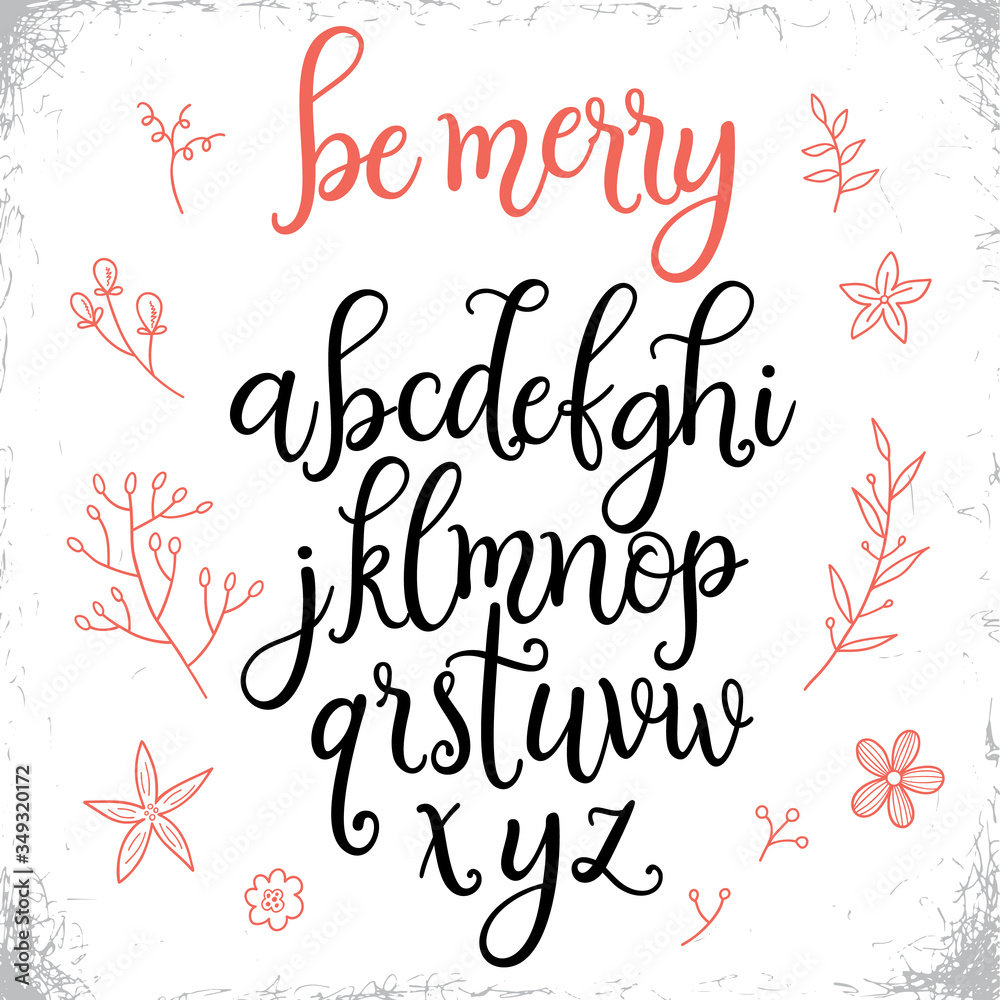 be merry
abcdefghi
jklmnop
qrstuvw
xyz
Adobe Stock | #349320172